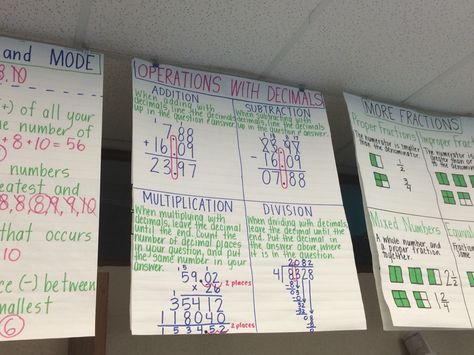 and MODE
+) of all your
e number of
+8+10=56
numbers
eatest and
8,8,8,9,9,10
that occurs
10
ce (-) between
mallest
6
OPERATIONS WITH DECIMALS
ADDITION
When adding with
decimals, line the decimals
up in the question & answer.
7.88
+ 16.09
23.97
SUBTRACTION
When subtracting with
decimals, line the decimals
up in the question & answer.
- 16.09
07.88
MULTIPLICATION
When multiplying with
decimals, leave the decimal
until the end. Count the
number of decimal places
in your question, and put
the same number in your
answer.
59.02
× 26
2 places
35412
118040
1534.52
2 places
DIVISION
When dividing with decimals,
leave the decimal until the
end. Put the decimal in
the answer above where
it is in the question.
MORE FRACTIONS
Proper Fractions
The numerator is smaller
than the denominator.
1/2
3/4
Improper Frac
The numerator
Mixed Numbers
A whole number, and
a proper fraction
together.
2 1/2
2 2/4
Equival